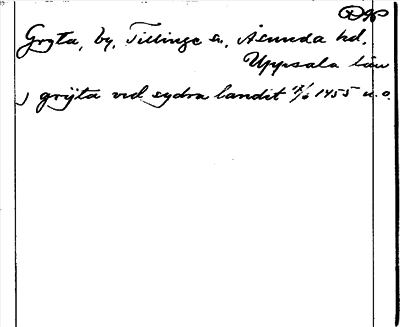 Gryta, by, Tillinge sn, Åsunda hd.
Uppsala län
J grÿta vid sydra landit 4/6 1455 u.o.